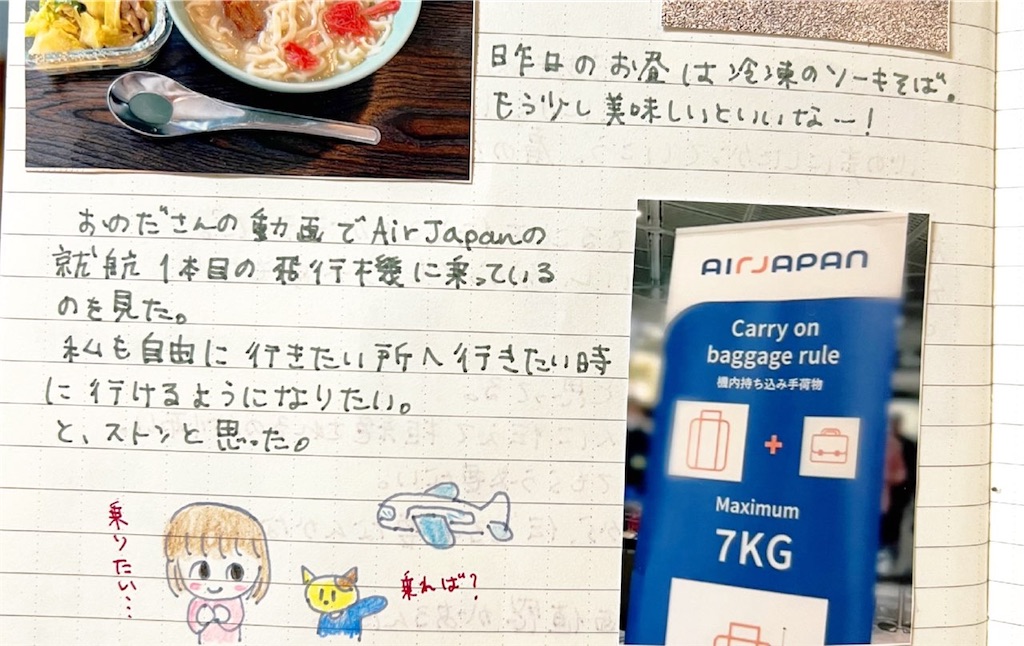 昨日のお昼は冷凍のソーキそば。
もう少し美味しいといいなー!
おのださんの動画でAirJapanの
就航1本目の飛行機に乗っている
のを見た。
私も自由に行きたい所へ行きたい時
に行けるようになりたい。
と、ストンと思った。
乗りたい…
乗れば?
AIRJAPAN
Carry on
baggage rule
機内持ち込み手荷物
+
Maximum
7KG